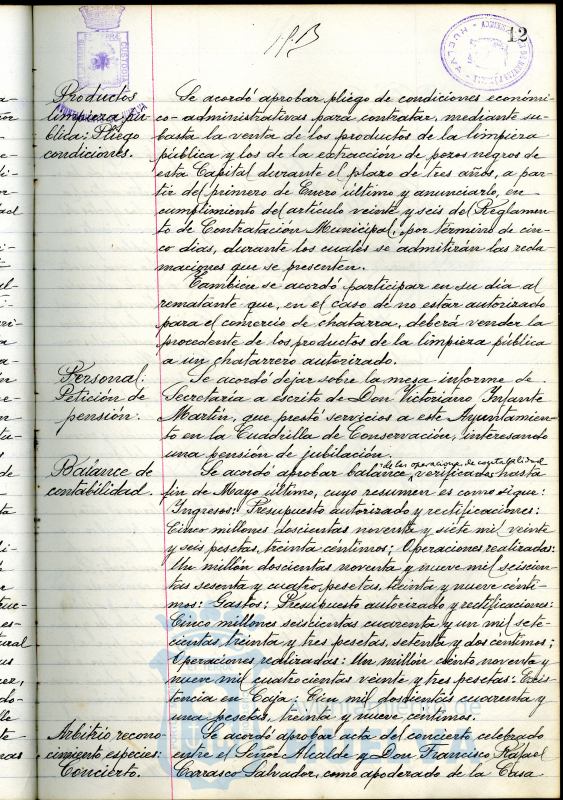 12
Productos
limpieza pú-
blica: Pliego
condiciones.
Se acordó aprobar pliego de condiciones económi-
co-administrativas para contratar, mediante su-
basta la venta de los productos de la limpieza
pública y los de la extracción de pozos negros de
esta Capital durante el plazo de tres años, a par-
tir del primero de Enero último y anunciarlo, en
cumplimiento del artículo veinte y seis del Reglamen-
to de Contratación Municipal, por término de cin-
co dias, durante los cuales se admitirán las recla-
maciones que se presenten.
También se acordó participar en su día al
rematante que, en el caso de no estar autorizado
para el comercio de chatarra, deberá vender la
procedente de los productos de la limpieza pública
a un chatarrero autorizado.
Personal.
Petición de
pensión.
Se acordó dejar sobre la mesa informe de
Secretaria a escrito de Don Victoriano Infante
Martín, que prestó servicios a este Ayuntamien-
to en la Cuadrilla de Conservación, interesando
una pensión de jubilación.
Balance de
contabilidad.
de las operaciones de contabilidad
Se acordó aprobar balance verificadas hasta
fin de Mayo último, cuyo resumen es como sigue:
Ingresos: Presupuesto autorizado y rectificaciones:
Cinco millones doscientas noventa y siete mil veinte
y seis pesetas, treinta céntimos; Operaciones realizadas:
Un millón doscientas noventa y nueve mil seiscien-
tas sesenta y cuatro pesetas, treinta y nueve cénti-
mos: Gastos: Presupuesto autorizado y rectificaciones:
Cinco millones seiscientas cuarenta y un mil sete-
cientas treinta y tres pesetas, setenta y dos céntimos;
Operaciones realizadas: Un millón ciento noventa y
nueve mil cuatrocientas veinte y tres pesetas: Exis-
tencia en Caja: Cien mil doscientas cuarenta y
una pesetas, treinta y nueve céntimos.
Arbitrio recono-
cimiento especies:
Concierto.
Se acordó aprobar acta del concierto celebrado
entre el Señor Alcalde y Don Francisco Rafael
Carrasco Salvador, como apoderado de la Casa
Ayuntamiento de
HUELVA